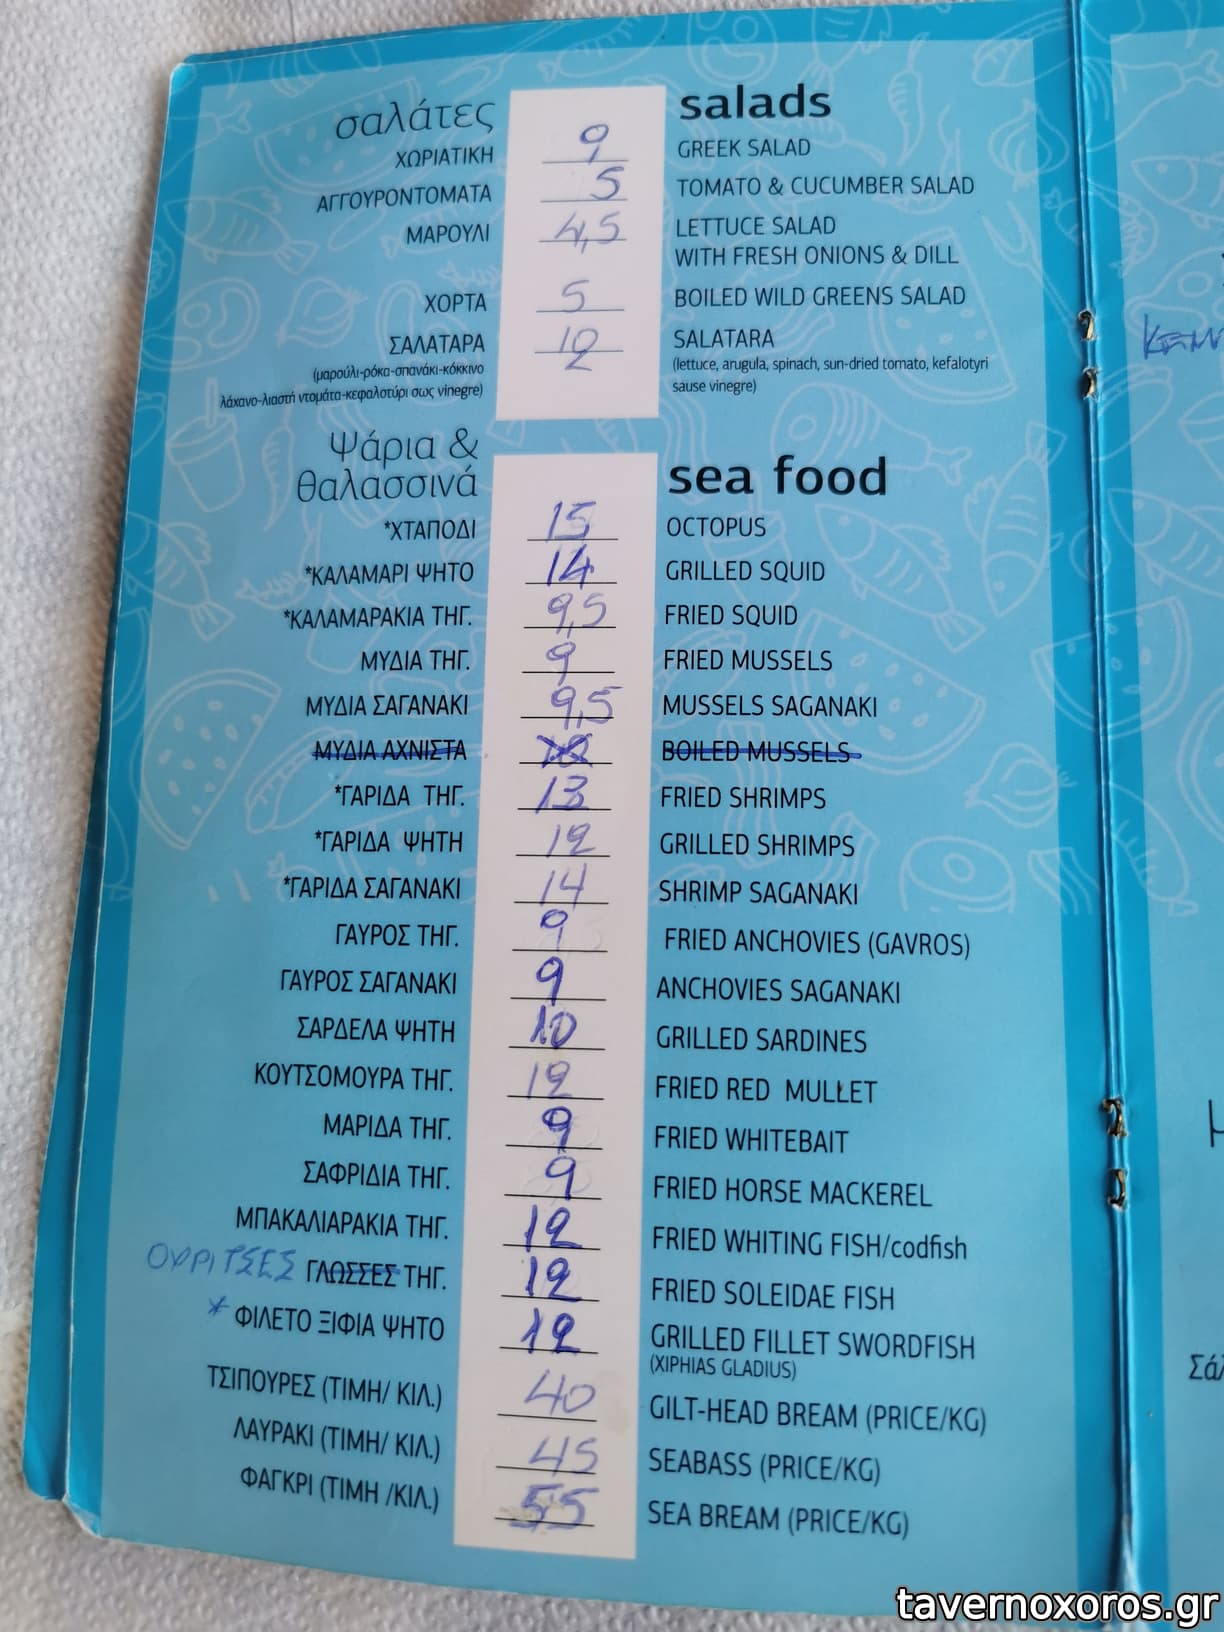 σαλάτες salads
ΧΩΡΙΑΤΙΚΗ 9 GREEK SALAD
ΑΓΓΟΥΡΟΝΤΟΜΑΤΑ 5 TOMATO & CUCUMBER SALAD
ΜΑΡΟΥΛΙ 4,5 LETTUCE SALAD
WITH FRESH ONIONS & DILL
ΧΟΡΤΑ 5 BOILED WILD GREENS SALAD
ΣΑΛΑΤΑΡΑ SALATARA
(μαρούλι-ρόκα-σπανάκι-κόκκινο (lettuce, arugula, spinach, sun-dried tomato, kefalotyri
λάχανο-λιαστή ντομάτα-κεφαλοτύρι σως vinegre) sause vinegre)
ψάρια &
θαλασσινά sea food
*ΧΤΑΠΟΔΙ 15 OCTOPUS
*ΚΑΛΑΜΑΡΙ ΨΗΤΟ 14 GRILLED SQUID
*ΚΑΛΑΜΑΡΑΚΙΑ ΤΗΓ. 9,5 FRIED SQUID
ΜΥΔΙΑ ΤΗΓ. 9 FRIED MUSSELS
ΜΥΔΙΑ ΣΑΓΑΝΑΚΙ 9,5 MUSSELS SAGANAKI
ΜΥΔΙΑ ΑΧΝΙΣΤΑ BOILED MUSSELS
*ΓΑΡΙΔΑ ΤΗΓ. 13 FRIED SHRIMPS
*ΓΑΡΙΔΑ ΨΗΤΗ 12 GRILLED SHRIMPS
*ΓΑΡΙΔΑ ΣΑΓΑΝΑΚΙ 14 SHRIMP SAGANAKI
ΓΑΥΡΟΣ ΤΗΓ. 9 FRIED ANCHOVIES (GAVROS)
ΓΑΥΡΟΣ ΣΑΓΑΝΑΚΙ 9 ANCHOVIES SAGANAKI
ΣΑΡΔΕΛΑ ΨΗΤΗ 10 GRILLED SARDINES
ΚΟΥΤΣΟΜΟΥΡΑ ΤΗΓ. 12 FRIED RED MULLET
ΜΑΡΙΔΑ ΤΗΓ. 9 FRIED WHITEBAIT
ΣΑΦΡΙΔΙΑ ΤΗΓ. 9 FRIED HORSE MACKEREL
ΜΠΑΚΑΛΙΑΡΑΚΙΑ ΤΗΓ. 12 FRIED WHITING FISH/codfish
ΟΥΡΙΤΣΕΣ ΓΛΩΣΣΕΣ ΤΗΓ. 12 FRIED SOLEIDAE FISH
* ΦΙΛΕΤΟ ΞΙΦΙΑ ΨΗΤΟ 12 GRILLED FILLET SWORDFISH
(XIPHIAS GLADIUS)
ΤΣΙΠΟΥΡΕΣ (ΤΙΜΗ/ ΚΙΛ.) 40 GILT-HEAD BREAM (PRICE/KG)
ΛΑΥΡΑΚΙ (ΤΙΜΗ/ ΚΙΛ.) 45 SEABASS (PRICE/KG)
ΦΑΓΚΡΙ (ΤΙΜΗ /ΚΙΛ.) 55 SEA BREAM (PRICE/KG)
tavernoxoros.gr